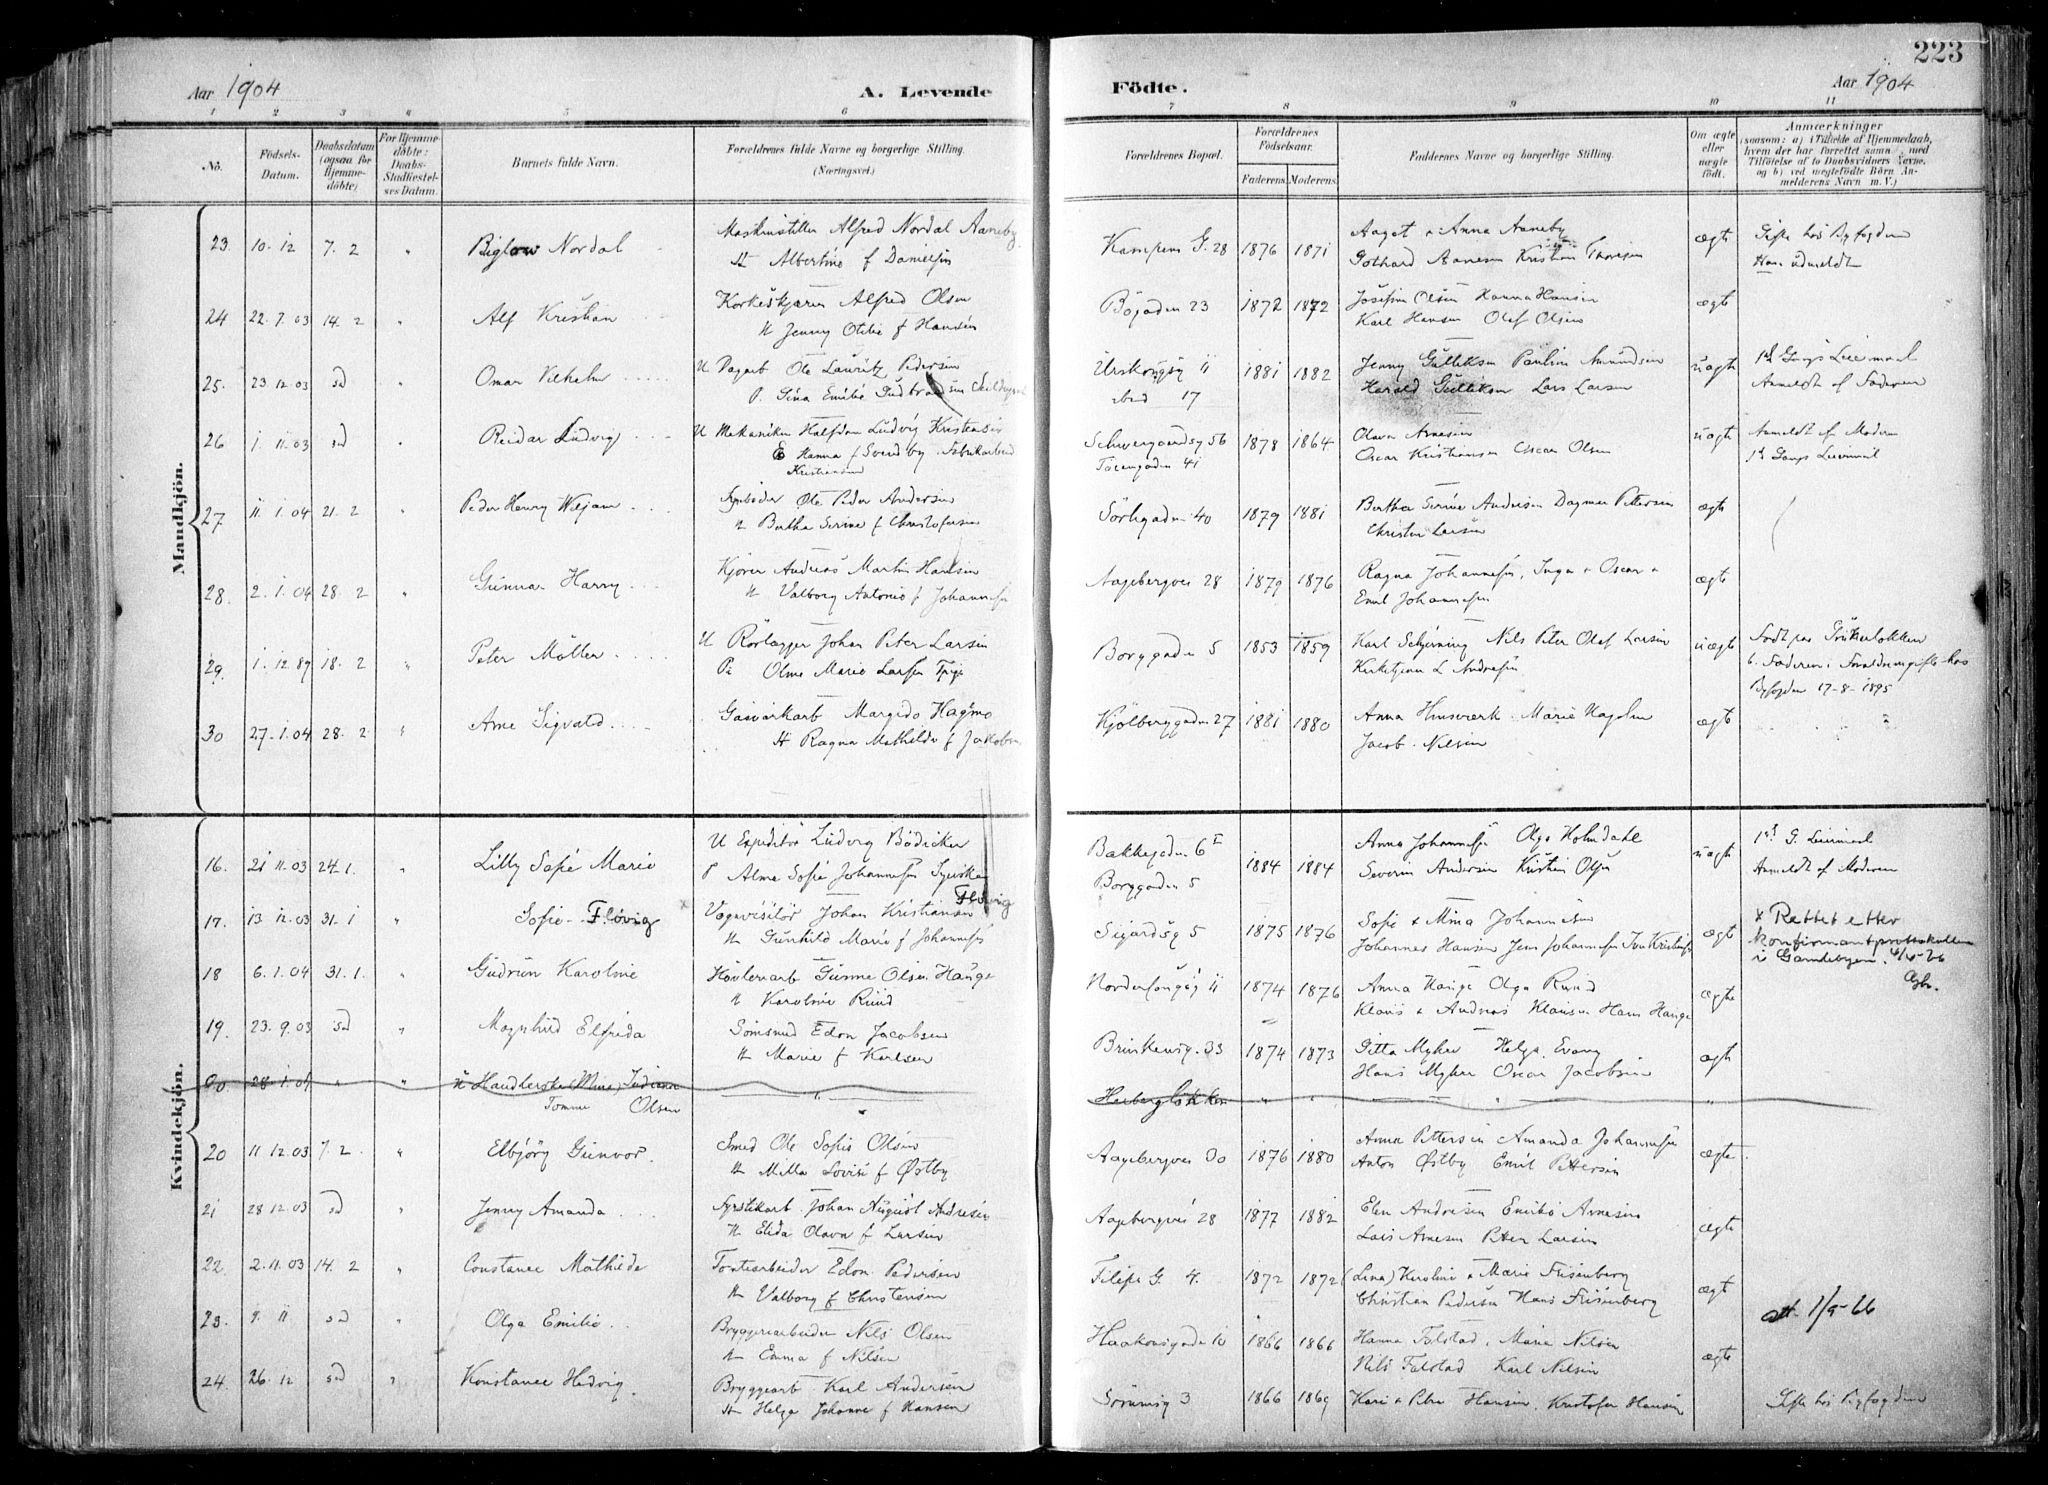 223
Aar 1904
A. Levende
Födte.
Aar 1904
1 2 3 4 5 6 7 8 9 10 11
No.
Födsels-
Datum.
Daabsdatum
(ogsaa for
Hjemme-
döbte)
For Hjemme-
döbte:
Daabs-
Stadfæstel-
ses Datum.
Barnets fulde Navn.
Forældrenes fulde Navne og borgerlige Stilling.
(Næringsvei.)
Forældrenes Bopæl.
Forældrenes
Födselsaar.
Faderens. Moderens.
Faddernes Navne og borgerlige Stilling.
Om ægte
eller
uægte
födt.
Anmærkninger
(saasom: a) i Tilfælde af Hjemmedaab,
hvem der har forrettet samme med
Tilföielse af to Daabsvidners Navne.
og b) ved uægtefödte Börn An-
melderens Navn m. V.)
Mandkjön.
23 10. 12 7. 2 " Nordal Alfred Nordal Aaneby
H Albertine f Danielsen
Kampens G. 28 1876 1871 Aagot + Anna Aaneby
Gothard Aanesen Kristian Thoresen
ægte Gifte hos Byfogden
Han udmeldt
24 22. 7. 03 14. 2 " Alf Kristian Korkeskjærer Alfred Olsen
H Jenny Otilie f Hansen
Bögaden 23 1872 1872 Josefine Olsen Hanna Hansen
Karl Hansen Olaf Olsen
ægte
25. 23 12 03 sd " Omar Vilhelm U Dagarb Ole Lauritz Pedersen
P. Gina Emilie Gudbrandsen
11 1881 1882 Jenny Gulliksen Pauline Amundsen
17 Harald Gulliksen Lars Larsen
uægte 1ste Gangs Leiermaal
Anmeldt af Faderen
26 1. 11. 03 sd " Reidar Ludvig U Mekaniker Halfdan Ludvig Kristensen
E Hanna f Svendby Fabrikarbeid
Kristiansund
Schweigaardsg 56 1878 1864 Olava Arnesen
41 Oscar Kristiansen Oscar Olsen
uægte Anmeldt af Moderen
1ste Gangs Leiermaal
27 11. 1. 04 21. 2 " Peder Henry Wiljam Ole Peder Andersen
H Bertha Serine f Christofersen
Sörligaden 40 1879 1881 Bertha Serine Andersen Dagmar Pettersen
Christen Larsen
ægte
28. 2. 1. 04 28. 2 " Gunnar Harry Kjörer Andreas Martin Hansen
H Valborg Antonie f Johannessen
Aagebergvei 28 1879 1876 Ragna Johannessen, Inga + Oscar +
Emil Johannessen
ægte
29. 1. 12. 89 18. 2 " Peter Möller U Rörlægger Johan Peter Larsen
Pi Oline Marie Larsen
Borggaden 5 1853 1859 Karl Schjerning Nils Peter Olaf Larsen
Kirketjener L Andresen
uægte Födt paa Grünerlökken
Faderen. Forældrene gifte hos
Byfogden 17-8-1895
30 27. 1. 04 28. 2 " Arne Sigvald Gasværkarb Margido Hagmo
H Ragna Mathilde f Jakobsen
Kjölberggaden 27 1881 1880 Anna Marie Hagelin
Jacob Nilsen
ægte
Kvindekjön.
16. 21 11. 03 24. 1. " Lilly Sofie Marie U Expeditör Ludvig Bödicker
P Alma Sofie Johannessen Syerske
Bakkegaden 6 1884 1884 Anna Johannessen Olga Holmdahl
Borggaden 5 Severin Andersen Kristian Olsen
uægte 1ste G. Leiermaal
Anmeldt af Moderen
17. 13 12. 03 31. 1 " Sofie Flövig x Vognvisitör Johan Kristiansen Flövig
H Gunhild Marie f Johannessen
Sigurdsg 5 1875 1876 Sofie + Mina Johannessen
Johannes Hansen Jens Johannessen
ægte x Rettet etter
konfirmantprotokollen
i Gamlebyen. 4/5-26
18 6. 1. 04 31. 1. " Gudrun Karoline Hövleriarb Gunne Olsen Hauge
H Karoline Ruud
11 1874 1876 Anna Hauge Olga Ruud
Klaus + Andreas Klausen Hans Hauge
ægte
19. 23. 9. 03 sd " Magnhild Elfrida Edon Jacobsen
H Marie f Karlsen
Brinkensg. 33 1874 1873 Gitta Myhre Helga Evang
Hans Myhre Oscar Jacobsen
ægte
28. 1. 01 " " Olsen
20 11 12. 03 7. 2 " Elbjörg Gunvor. Smed Ole Sofus Olsen
H Milla Lovise f Østby
Aagebergvei 30 1876 1880 Anna Pettersen Amanda Johannessen
Anton Østby Emil Pettersen
ægte
21 28 12. 03 sd " Jenny Amanda Fyrstikarb Johan August Andresen
H Elida Olava f Larsen
Aagebergvei 28 1877 1882 Elen Andresen Emilie Arnesen
Lars Arnesen Peter Larsen
ægte
22. 2. 11. 03 14. 2 " Constance Mathilde Tomtearbeider Edon Pedersen
H Valborg f Christensen
Filips G 4. 1872 1872 (Lina) Karoline + Marie Frisenberg
Christian Pedersen Hans Frisenberg
ægte
23. 9. 11 sd " Olga Emilie Bryggeriarbeider Nils Olsen
H Emma f Nilsen
Haakonsgade 10 1866 1866 Hanna Falstad, Marie Nilsen
Nils Falstad Karl Nilsen
ægte att. 1/9-66
24. 26. 12 sd " Konstance Hedvig. Bryggearb Karl Andersen
H Helga Johanne f Hansen
3 1866 1869 Kari + Petra Hansen, Kristofer Hansen
Gifte hos Byfogden